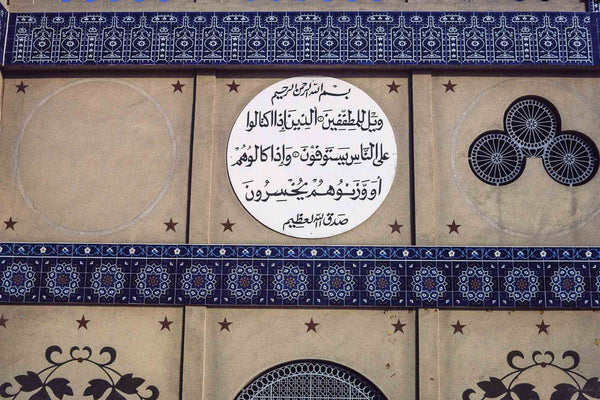 بسم الله الرحمن الرحيم
ويل للمطففين الذين إذا اكتالوا
على الناس يستوفون وإذا كالوهم
أو وزنوهم يخسرون
صدق الله العظيم